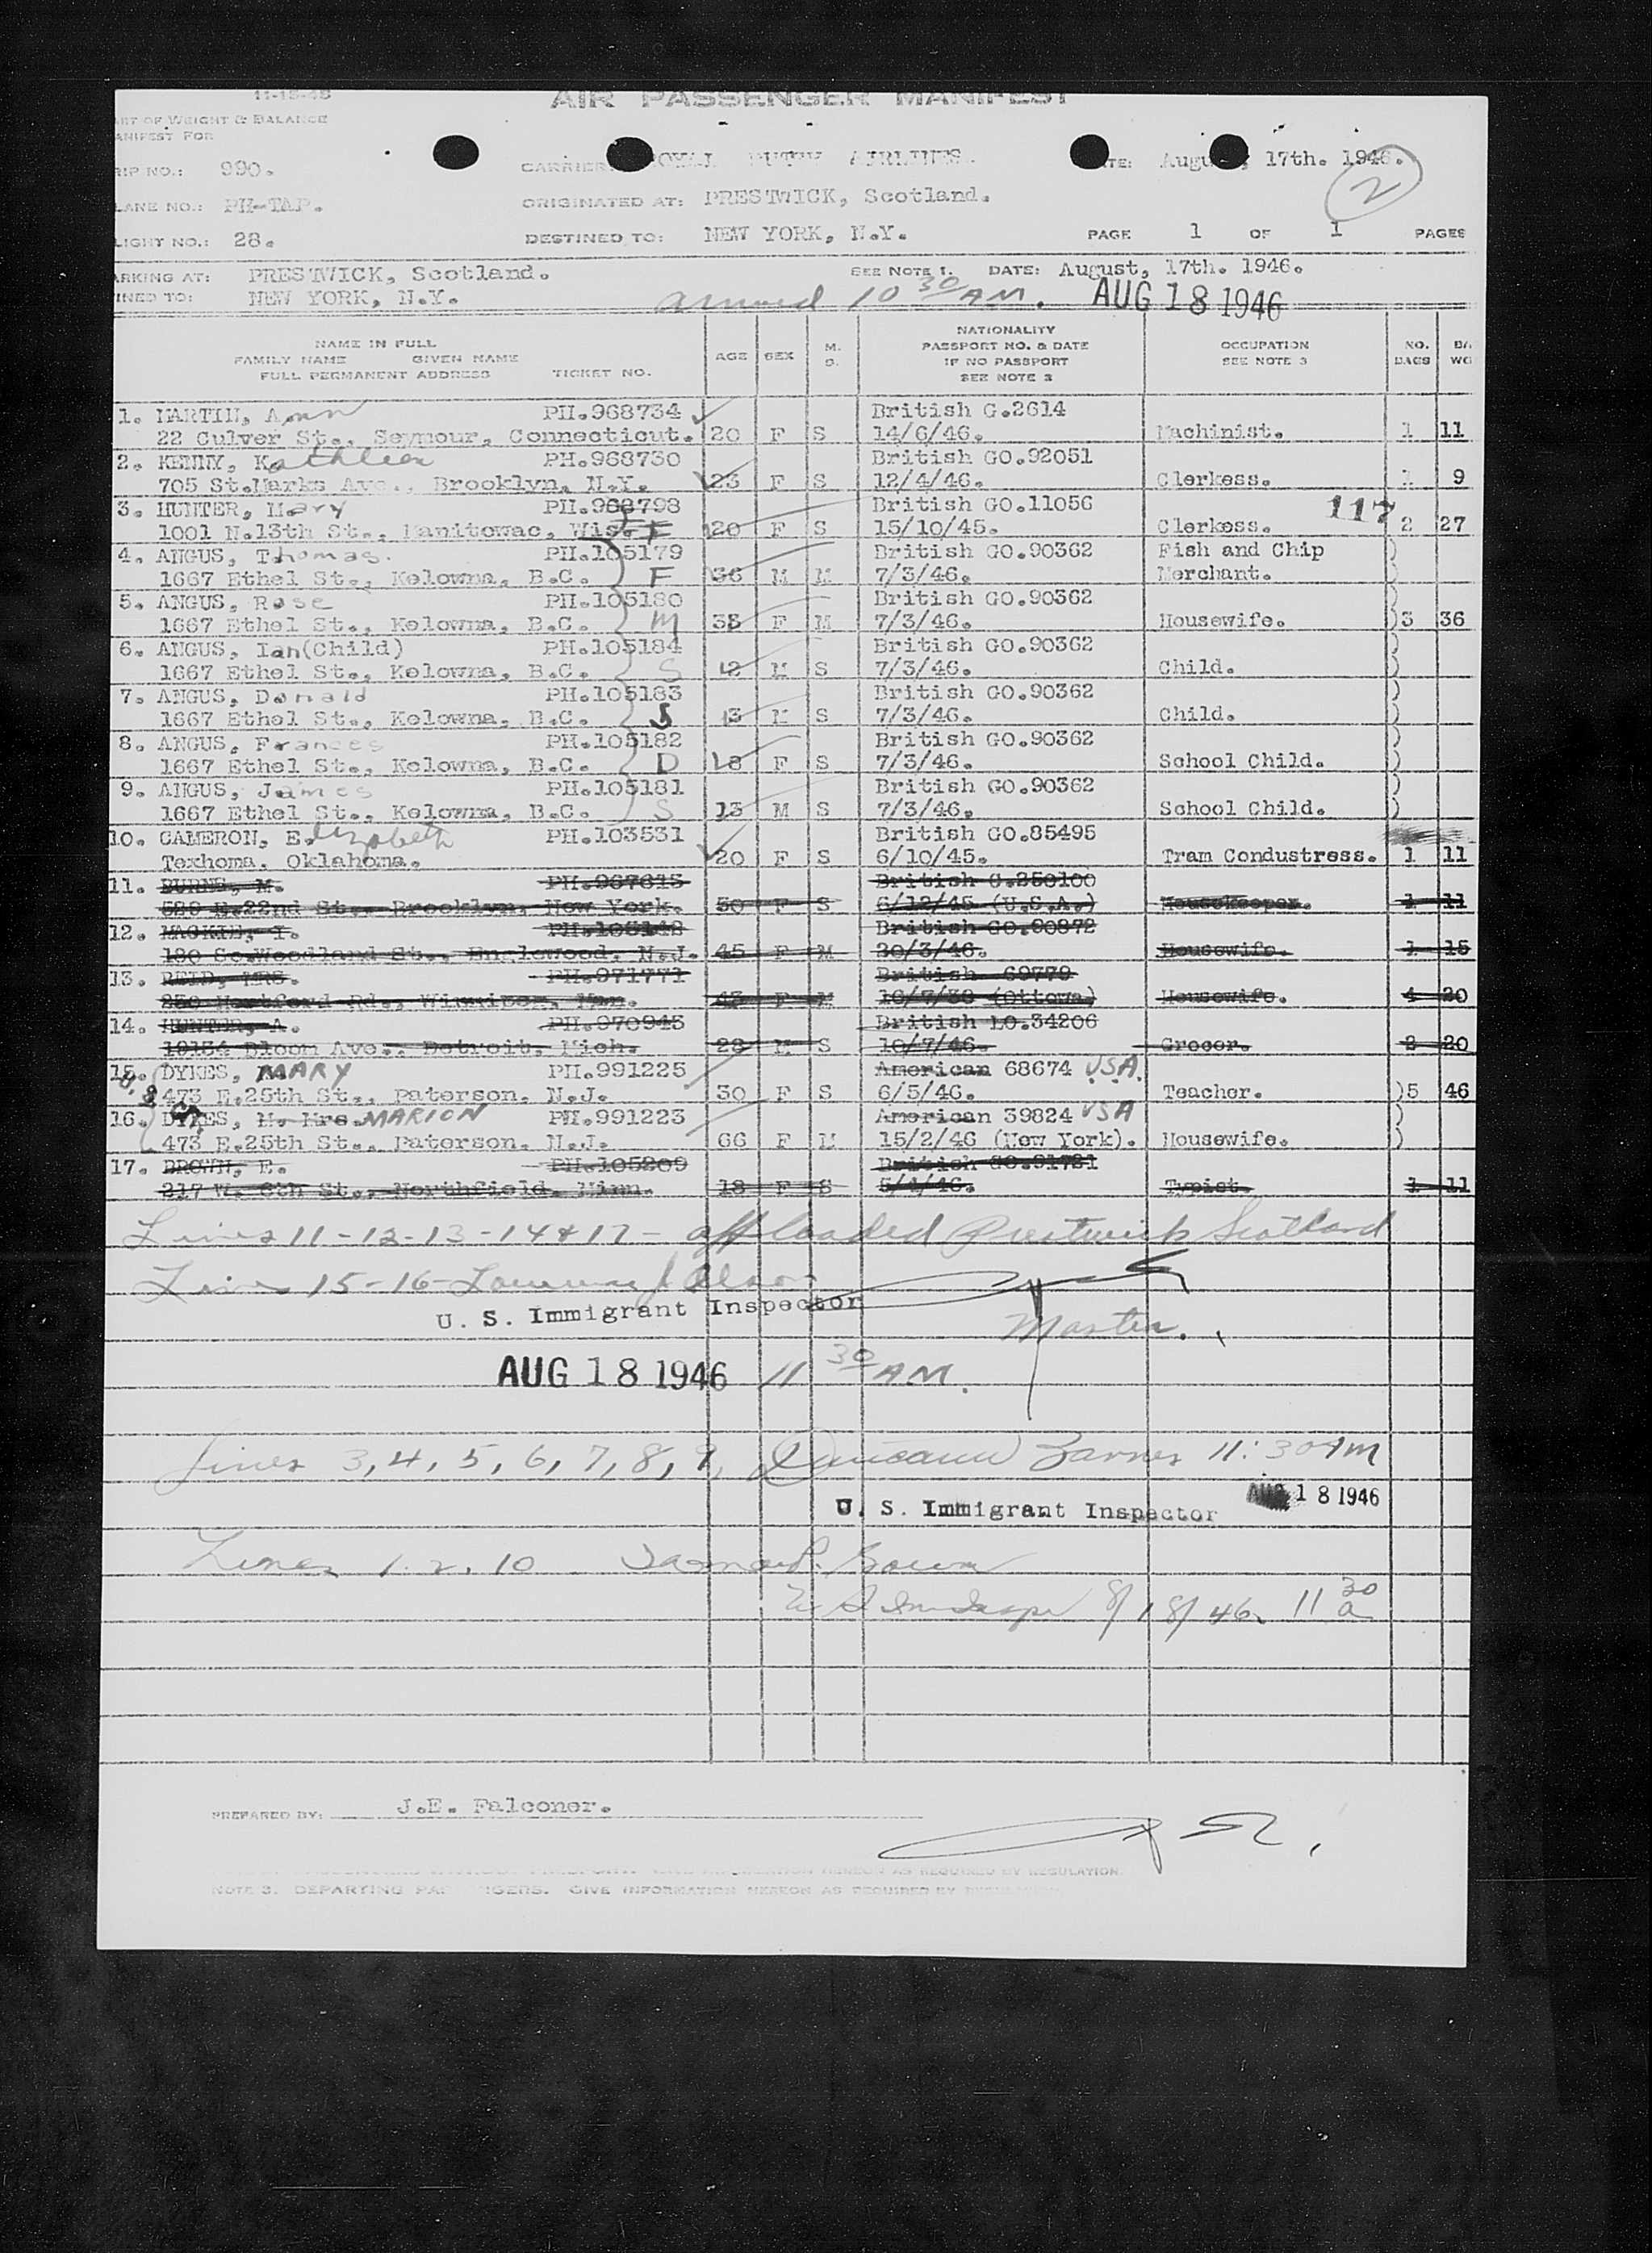 11-15-45
AIR PASSENGER MANIFEST
WEIGHT & BALANCE
FOR
NO.: 990.
CARRIER: DUTCH AIRLINES.
17th. 1946.
2
NO.: PH-TAP.
ORIGINATED AT: PRESTWICK, Scotland.
NO.: 28.
DESTINED TO: NEW YORK, N.Y.
PAGE 1 OF 1 PAGES
AT: PRESTWICK, Scotland.
SEE NOTE 1. DATE: August, 17th. 1946.
TO: NEW YORK, N.Y.
arrived 10 30 AM. AUG 18 1946
NAME IN FULL
FAMILY NAME GIVEN NAME
FULL PERMANENT ADDRESS TICKET NO.
AGE SEX M. S.
NATIONALITY
PASSPORT NO. & DATE
IF NO PASSPORT
SEE NOTE 2
OCCUPATION
SEE NOTE 3
NO. BAGS
1. MARTIN, Ann PH.968734 British G.2614
22 Culver St., Seymour, Connecticut. 20 F S 14/6/46. Machinist. 1 11
2. KENNY, Kathleen PH.968730 British GO.92051
705 St.Marks Ave., Brooklyn, N.Y. 23 F S 12/4/46. Clerkess. 1 9
3. HUNTER, Mary PH.968798 British GO.11056 117
1001 N.13th St., Manitowac, Wis. 20 F S 15/10/45. Clerkess. 2 27
4. ANGUS, Thomas. PH.105179 British GO.90362 Fish and Chip
1667 Ethel St., Kelowna, B.C. F 36 M M 7/3/46. Merchant.
5. ANGUS, Rose PH.105180 British GO.90362
1667 Ethel St., Kelowna, B.C. M 38 F M 7/3/46. Housewife. 3 36
6. ANGUS, Ian(Child) PH.105184 British GO.90362
1667 Ethel St., Kelowna, B.C. S 12 M S 7/3/46. Child.
7. ANGUS, Donald PH.105183 British GO.90362
1667 Ethel St., Kelowna, B.C. S 13 M S 7/3/46. Child.
8. ANGUS, Frances PH.105182 British GO.90362
1667 Ethel St., Kelowna, B.C. D 18 F S 7/3/46. School Child.
9. ANGUS, James PH.105181 British GO.90362
1667 Ethel St., Kelowna, B.C. S 13 M S 7/3/46. School Child.
10. CAMERON, Elizabeth PH.103531 British GO.85495
Texhoma. Oklahoma. 20 F S 6/10/45. Tram Condustress. 1 11
11. BURNS, M. PH.967615 British C.250100
529 E.22nd St., Brooklyn, New York. 50 F S 6/12/45 (U.S.A.) Housekeeper. 1 11
12. MACKIE, I. PH.105148 British GO.90872
180 So.Woodland St., Englewood, N.J. 45 F M 20/3/46. Housewife. 1 15
13. REID, MRS. PH.971771 British 69779
250 Hartford Rd., Winnipeg, Man. 43 F M 16/7/36 (Ottowa) Housewife. 4 20
14. HUNTER, A. PH.970945 British LO.34206
19134 Bloom Ave., Detroit, Mich. 28 M S 10/7/46. Grocer. 2 20
15. DYKES, MARY PH.991225 American 68674 USA.
473 E.25th St., Paterson, N.J. 30 F S 6/5/46. Teacher. 5 46
16. DYKES, H. Mrs. MARION PH.991223 American 39824 USA
473 E.25th St., Paterson, N.J. 66 F M 15/2/46 (New York). Housewife.
17. BROWN, E. PH.105209 British GO.91721
217 W. 6th St., Northfield, Minn. 18 F S 5/4/46. Typist. 1 11
Lines 11-12-13-14 & 17 - offloaded Prestwick Scotland
Lines 15-16-
U. S. Immigrant Inspector
Master.
AUG 18 1946 11 30 AM.
Lines 3, 4, 5, 6, 7, 8, 9, 11:30 AM
U. S. Immigrant Inspector AUG 18 1946
Lines 1. 2. 10
8/18/46 11 30 a
PREPARED BY: J.E. Falconer.
HEREON AS REQUIRED BY REGULATION.
NOTE 3. DEPARTING GIVE INFORMATION HEREON AS REQUIRED BY